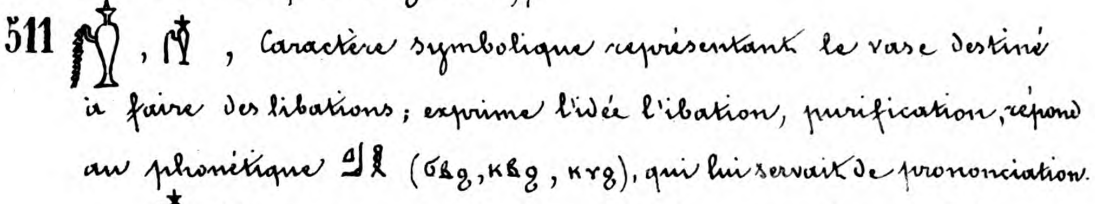 511 , , Caractère symbolique représentant le vase destiné
à faire des libations; exprime l'idée l'ibation, purification, répond
au phonétique (ϭⲃϩ, ⲕⲃϩ, ), qui lui servait de prononciation.